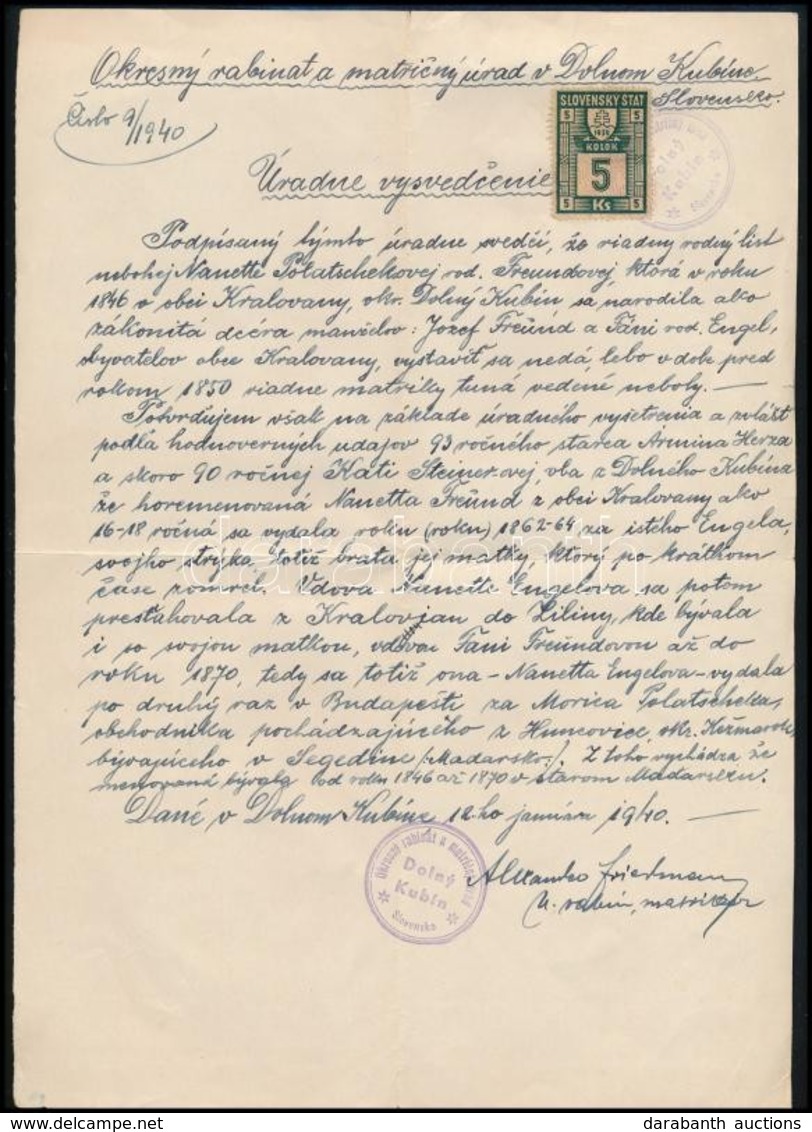 Okresný rabinat a matričný úrad v Dolnom Kubíne
Slovensko.
Číslo 9/1940
SLOVENSKÝ ŠTÁT
5 5
1939
KOLOK
5
5 Ks 5
Dolný
Kubín
Slovensko
Úradne vysvedčenie
Podpísaný týmto úradne svedčí, že riadny rodný list
nebohej Nanetti Polatschekovej rod. Freundovej, ktorá v roku
1846 v obci Kralovany, okr. Dolný Kubín sa narodila ako
zákonitá dcéra manželov: Jozef Freünd a Fáni rod. Engel,
obyvatelov obce Kralovany, vystaviť sa nedá, lebo v dobe pred
rokom 1850 riadne matriky tuná vedené neboly. —
Potvrdujem však na základe úradného vyšetrenia a zvlášt
podla hodnoverných udajov 93 ročného starca Armina Herza
a skoro 90 ročnej Kati Steiner-ovej, oba z Dolného Kubína
že horemenovaná Nanetta Freünd z obci Kralovany ako
16-18 ročná sa vydala roku (roku) 1862-64 za istého Engela,
svojho strýka, totiž brata jej matky, ktorý po krátkom
čase zomrel. Vdova Nanetti Engelova sa potom
presťahovala z Kralovjan do Žiliny, kde bývala
i so svojou matkou, vdovou Fani Freündovou až do
roku 1870, tedy sa totiž ona – Nanetta Engelova – vydala
po druhý raz v Budapešti za Morica Polatscheka,
obchodníka pochádzajúceho z Huncovice, okr. Kežmarok,
bývajúceho v Segedine /Madarsko/. Z toho vychádza, že
menovaná bývala od roku 1846 až 1870 v starom Madarsku.
Dané v Dolnom Kubíne 12-ho januára 1940. —
Okresný rabinát a matričný úrad
Dolný
Kubín
Slovensko
Alexander Friedmann
rabín, matrikár
darabanth
darabanth auctions